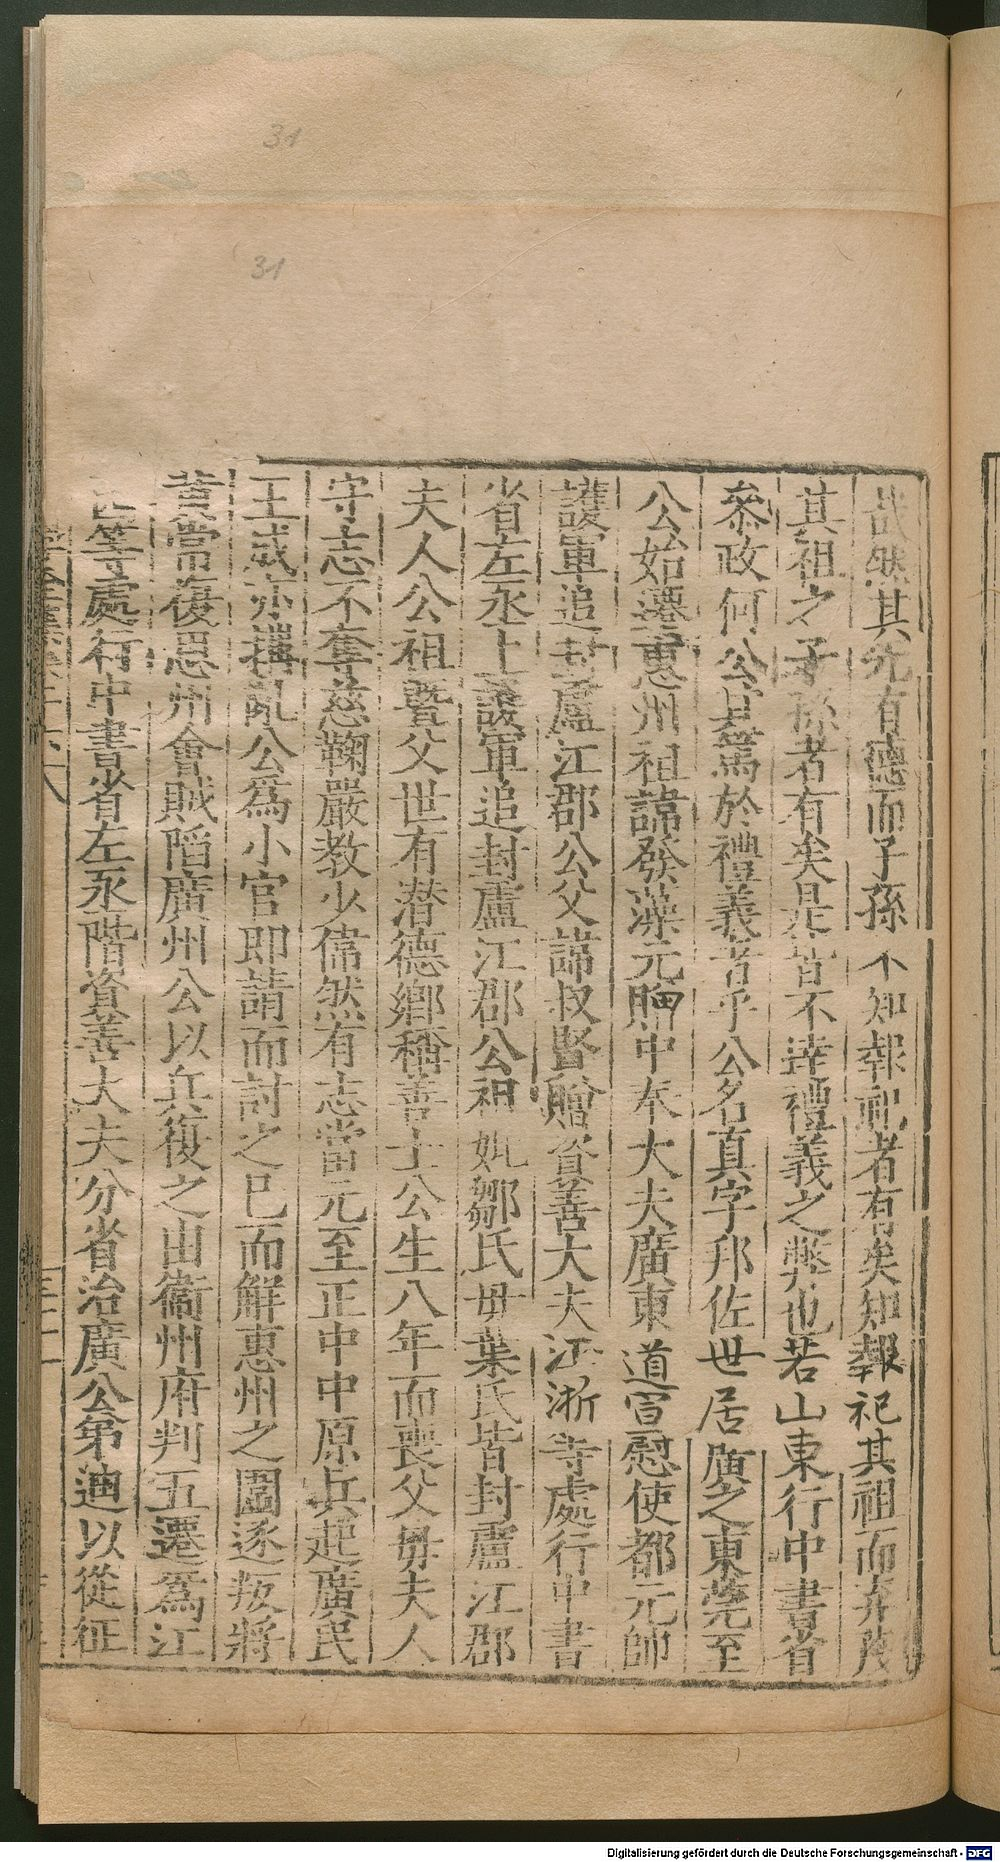 31
31
哉然其先有德而子孫不知報祀者有矣知報祀其祖而弃茂
其祖之子孫者有矣是皆不達禮義之弊也若山東行中書省
叅政何公其篤於禮義者乎公名真字邦佐世居廣之東莞至
公始遷惠州祖諱發藻元贈中奉大夫廣東道宣慰使都元帥
護軍追封廬江郡公父諱叔賢贈資善大夫江浙等處行中書
省左丞上護軍追封廬江郡公祖妣鄒氏毋葉氏皆封廬江郡
夫人公祖暨父世有潜德鄉稱善士公生八年而喪父毋夫人
守志不奪慈鞠嚴教少偉然有志當元至正中中原兵起廣民
王成亦搆亂公爲小官即請而討之已而解惠州之圍逐叛將
黄常復惠州會賊陷廣州公以兵復之由衞州府判五遷爲江
西等處行中書省左丞階資善大夫分省治廣公弟迪以從征
Digitalisierung gefördert durch die Deutsche Forschungsgemeinschaft - DFG